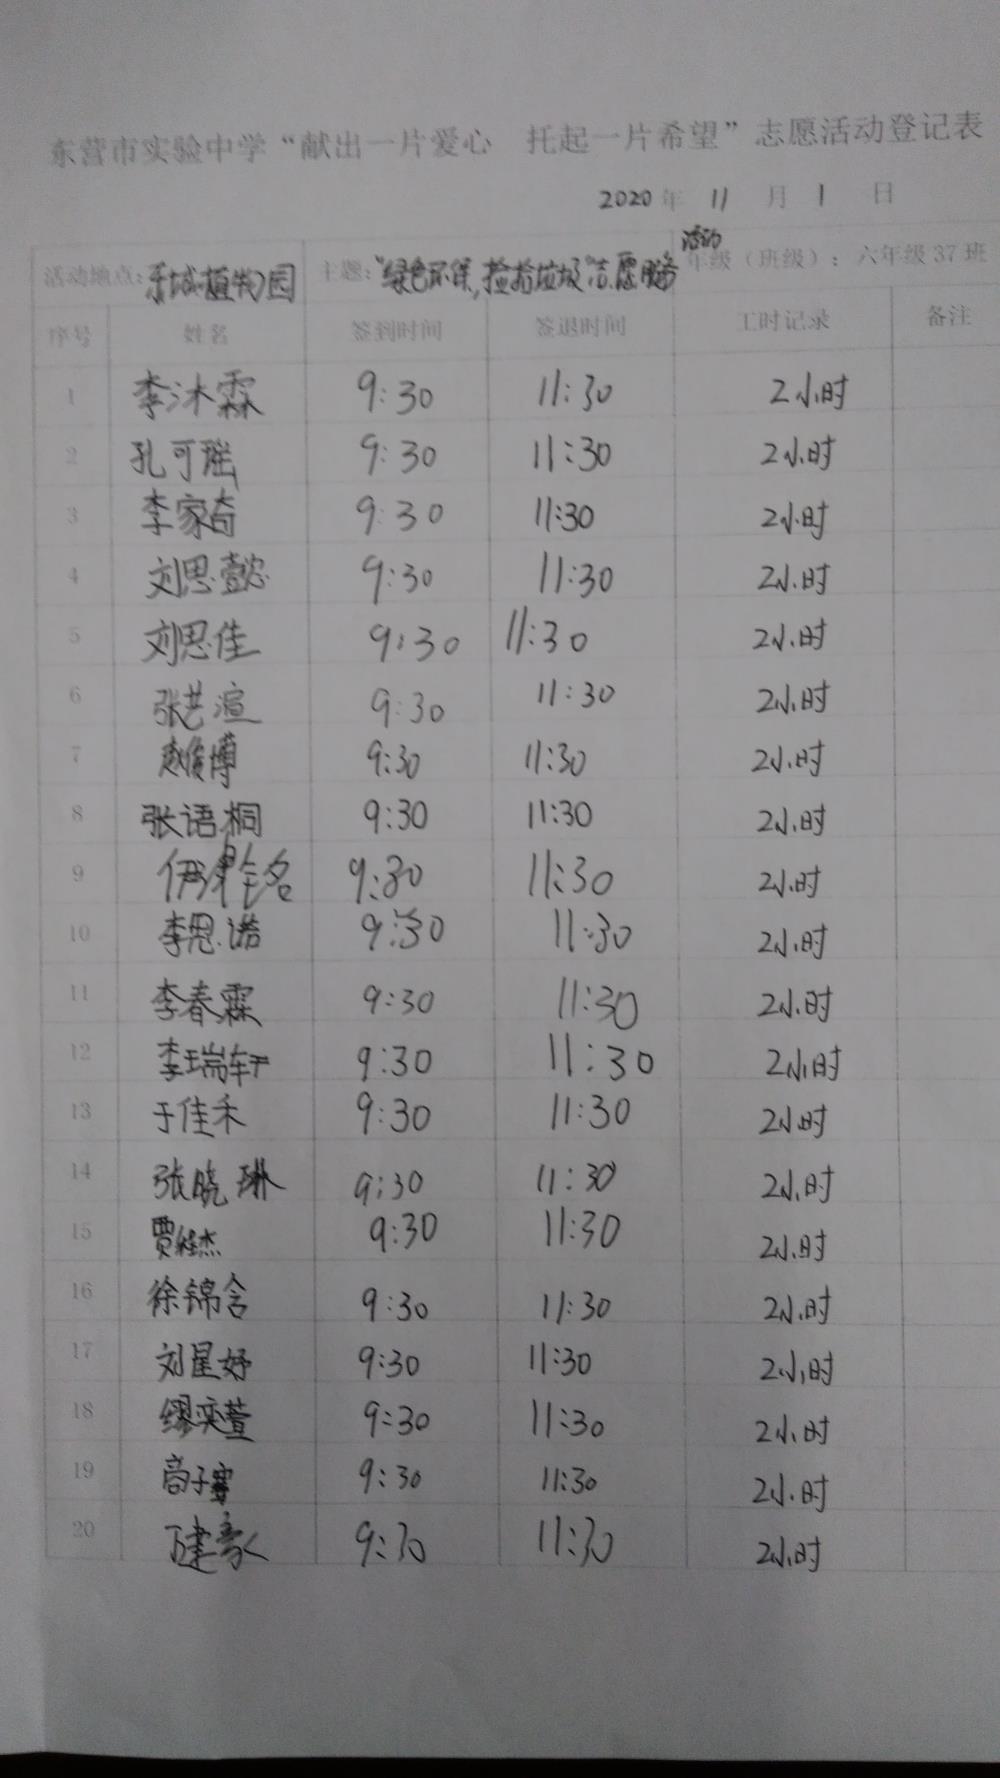 东营市实验中学“献出一片爱心 托起一片希望”志愿活动登记表
2020年 11 月 1 日
活动地点：东城植物园 主题：“绿色环保，捡拾垃圾”志愿服务活动 年级（班级）：六年级37班
序号 姓名 签到时间 签退时间 工时记录 备注
1 李沐霖 9:30 11:30 2小时
2 孔可瑶 9:30 11:30 2小时
3 李家奇 9:30 11:30 2小时
4 刘思懿 9:30 11:30 2小时
5 刘思佳 9:30 11:30 2小时
6 张艺渲 9:30 11:30 2小时
7 赵俊博 9:30 11:30 2小时
8 张语桐 9:30 11:30 2小时
9 9:30 11:30 2小时
10 李思诺 9:30 11:30 2小时
11 李春霖 9:30 11:30 2小时
12 李瑞轩 9:30 11:30 2小时
13 于佳禾 9:30 11:30 2小时
14 张晓琳 9:30 11:30 2小时
15 9:30 11:30 2小时
16 徐锦含 9:30 11:30 2小时
17 刘星妤 9:30 11:30 2小时
18 缪奕萱 9:30 11:30 2小时
19 9:30 11:30 2小时
20 9:30 11:30 2小时